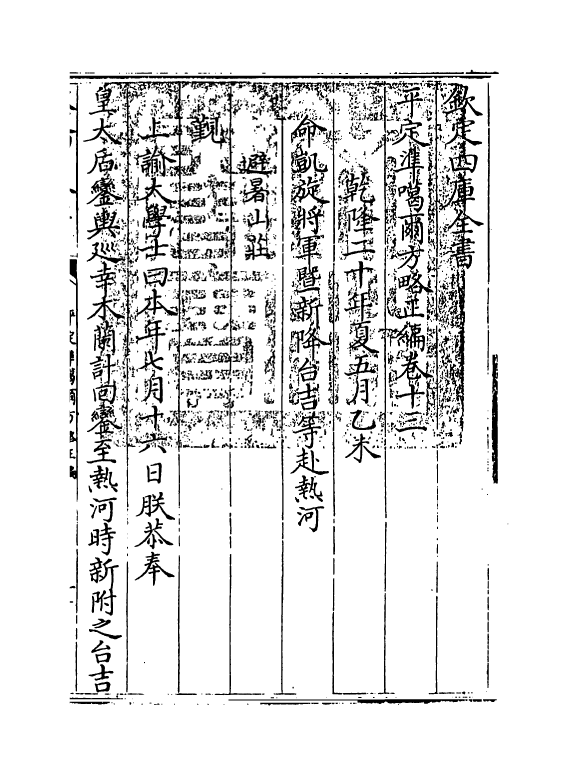 欽定四庫全書
平定準噶爾方略正編卷十三
乾隆二十年夏五月乙未
命凱旋將軍暨新降台吉等赴熱河
避暑山莊
觀
上諭大學士曰本年七月十六日朕恭奉
皇太后鑾輿巡幸木蘭計回鑾至熱河時新附之台吉